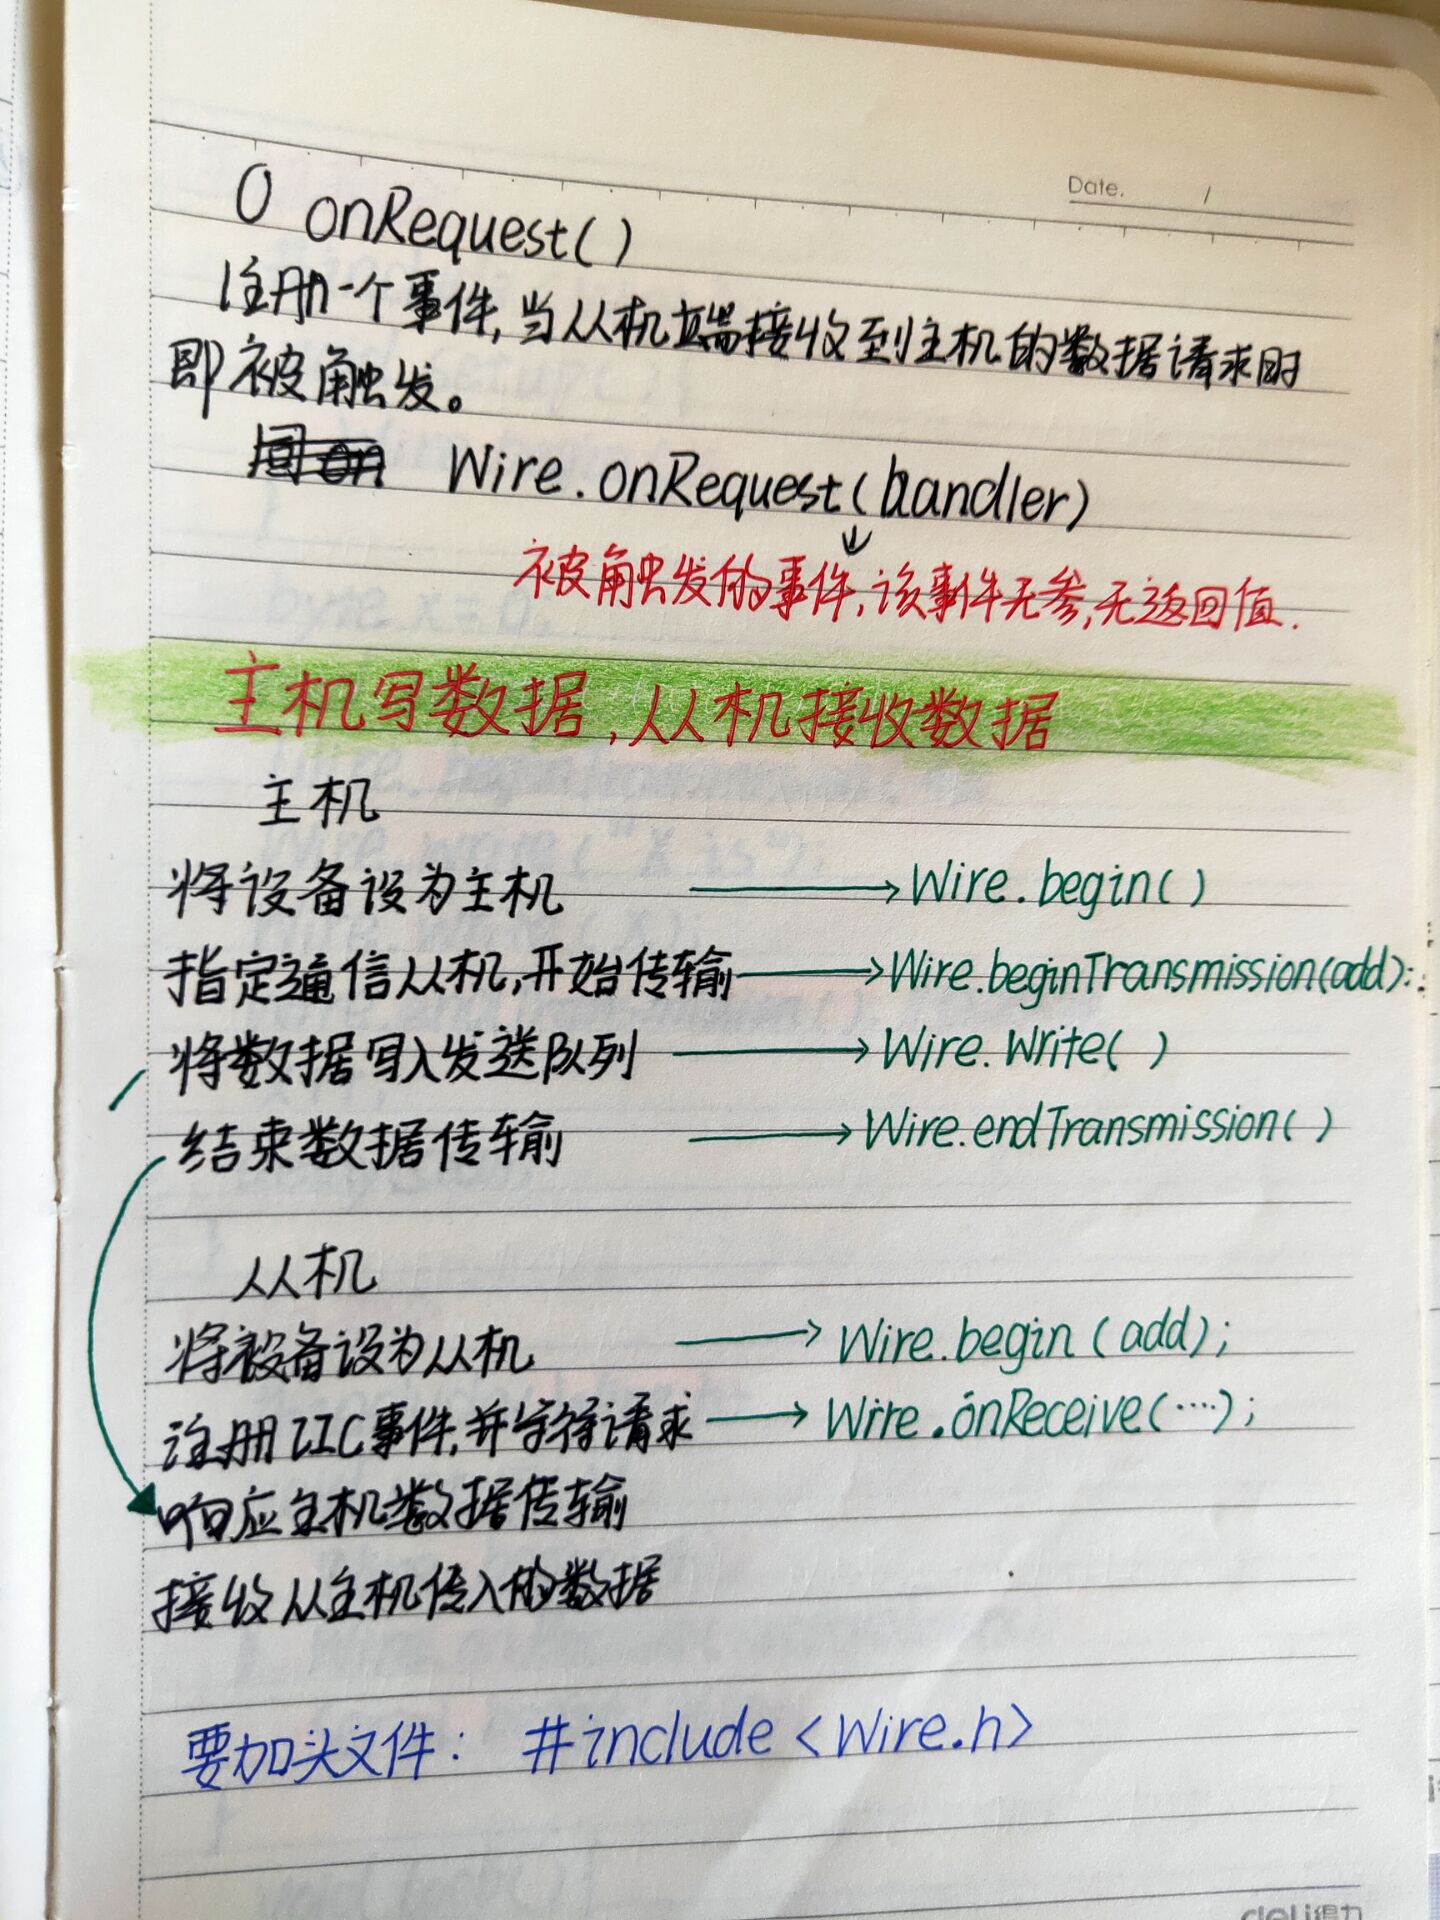 Date. /
O onRequest()
注册一个事件,当从机端接收到主机的数据请求时
即被触发。
Wire.onRequest(handler)
被触发的事件,该事件无参,无返回值.
主机写数据,从机接收数据
主机
将设备设为主机 → Wire.begin()
指定通信从机,开始传输 → Wire.beginTransmission(add);
将数据写入发送队列 → Wire.Write( )
结束数据传输 → Wire.endTransmission( )
从机
将设备设为从机 → Wire.begin (add);
注册IIC事件,并等待请求 → Wire.onReceive(····);
响应主机数据传输
接收从主机传入的数据
要加头文件: #include <Wire.h>
deli得力